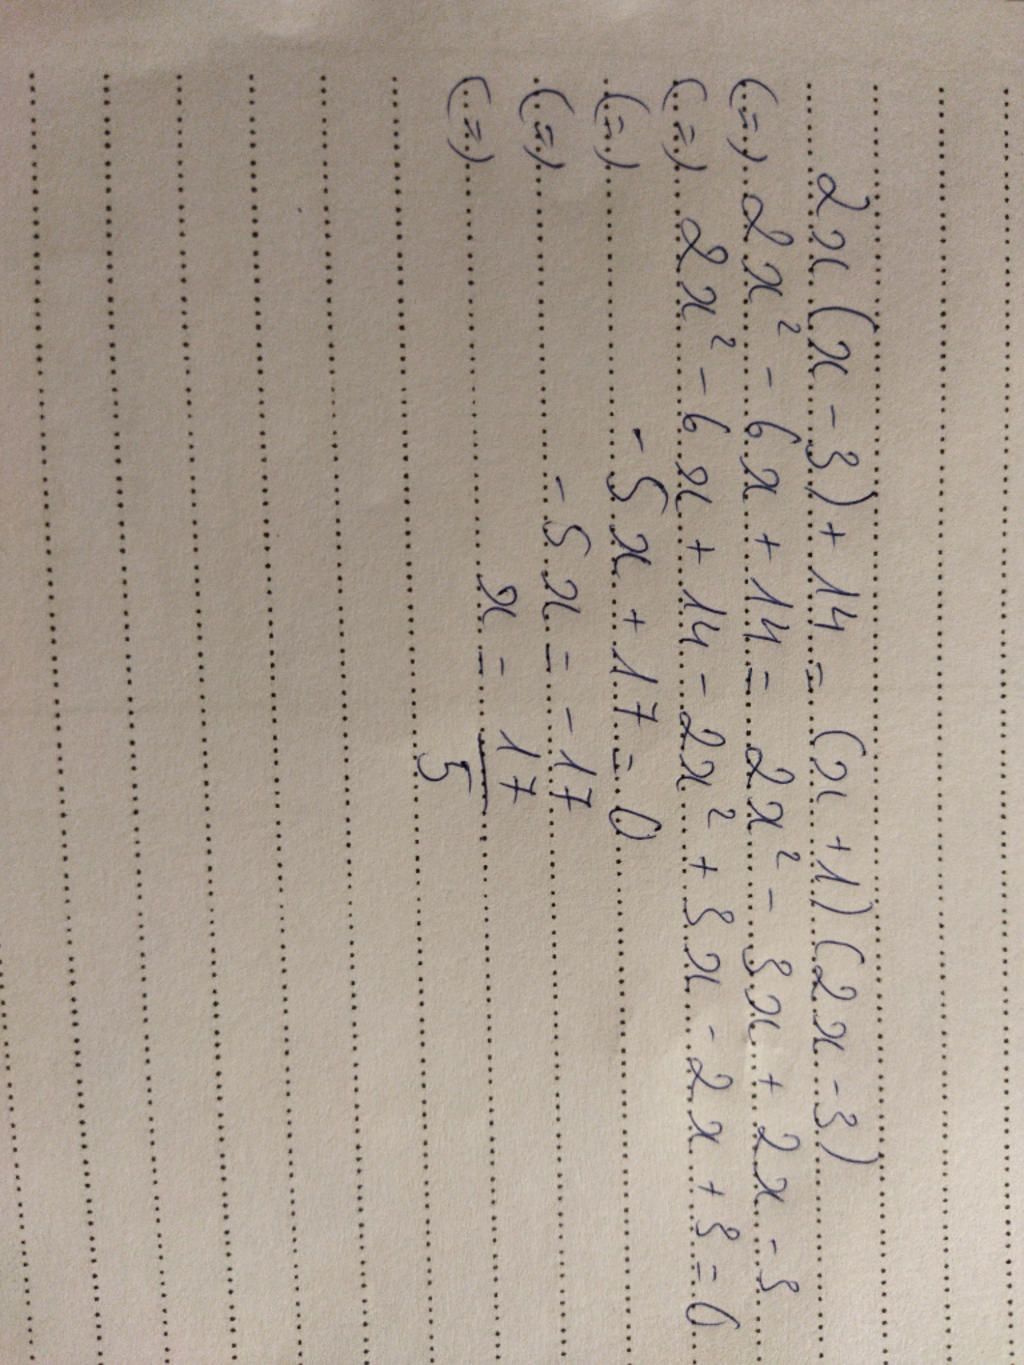 2x(x-3)+14=(x+1)(2x-3)
(=) 2x²-6x+14=2x²-3x+2x-3
(=) 2x²-6x+14-2x²+3x-2x+3=0
(=) -5x+17=0
(=) -5x=-17
(=) x=17/5